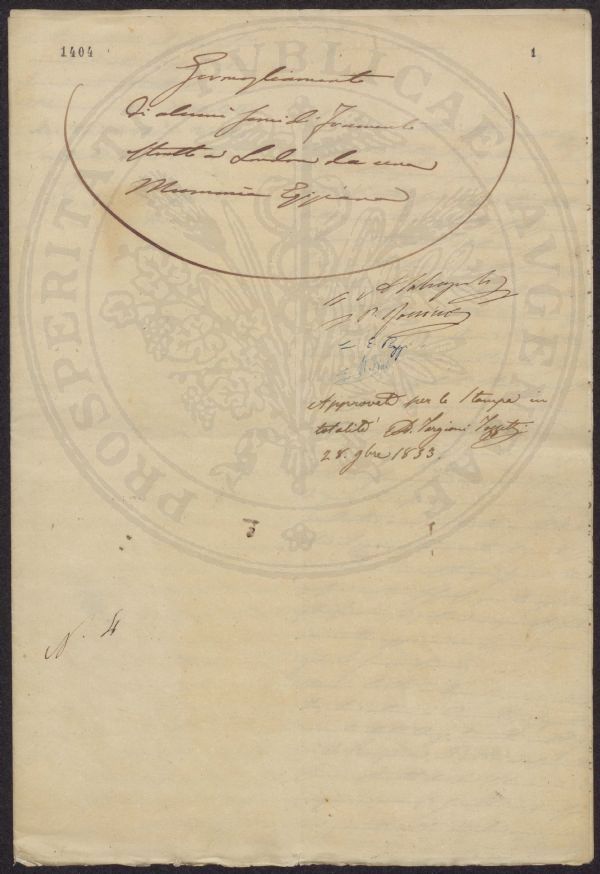 1404
1
Germogliamento
di alcuni semi di Frumento
stratto a Londra da una
Mummia Egiziana
Approvato per la Stampa in
totalità A. Targioni Tozzetti
28. 9bre 1833.
N. 4
PROSPERITATI PVBLICAE AVGENDAE